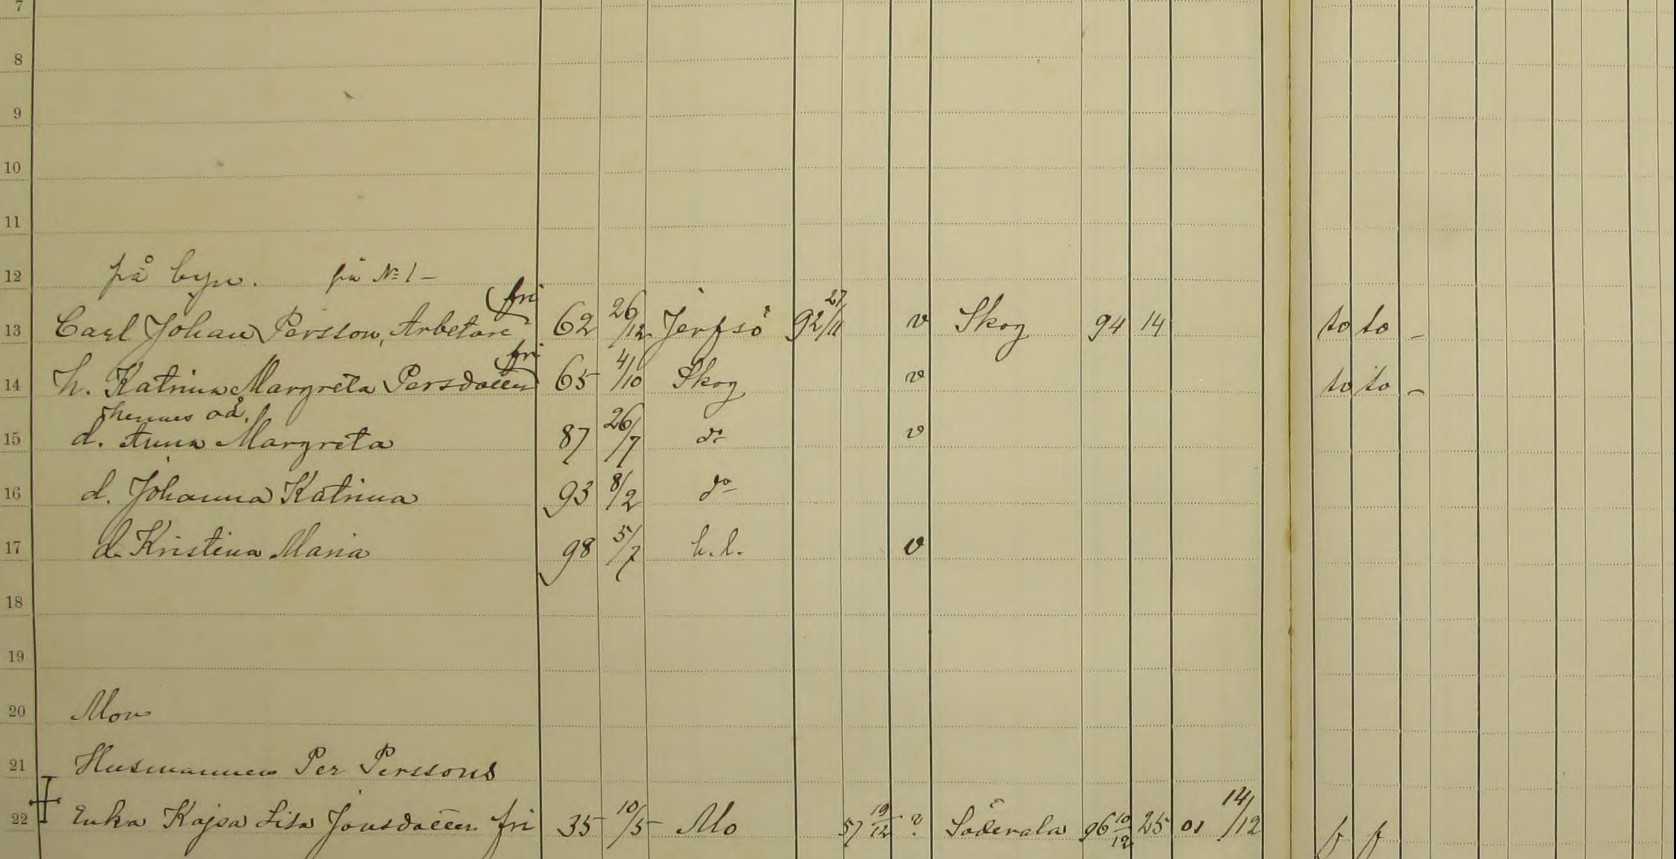 7
8
9
10
11
12 på byn. på No 1 –
13 Carl Johan Persson, Arbetare fri 62 26/12 Jerfsö 92 27/11 v Skog 94 14 to to –
14 h. Katrina Margreta Persdotter fri 65 4/10 Skog v to to –
hennes oä.
15 d. Anna Margreta 87 26/7 do v
16 d. Johanna Katrina 93 8/2 do
17 d. Kristina Maria 98 5/7 h.f. v
18
19
20 Mon
21 Husmannen Per Perssons
22 Enka Kajsa Lisa Jonsdotter fri 35 10/5 Mo 57 19/12 ? Söderala 96 10/12 25 01 14/12 f f